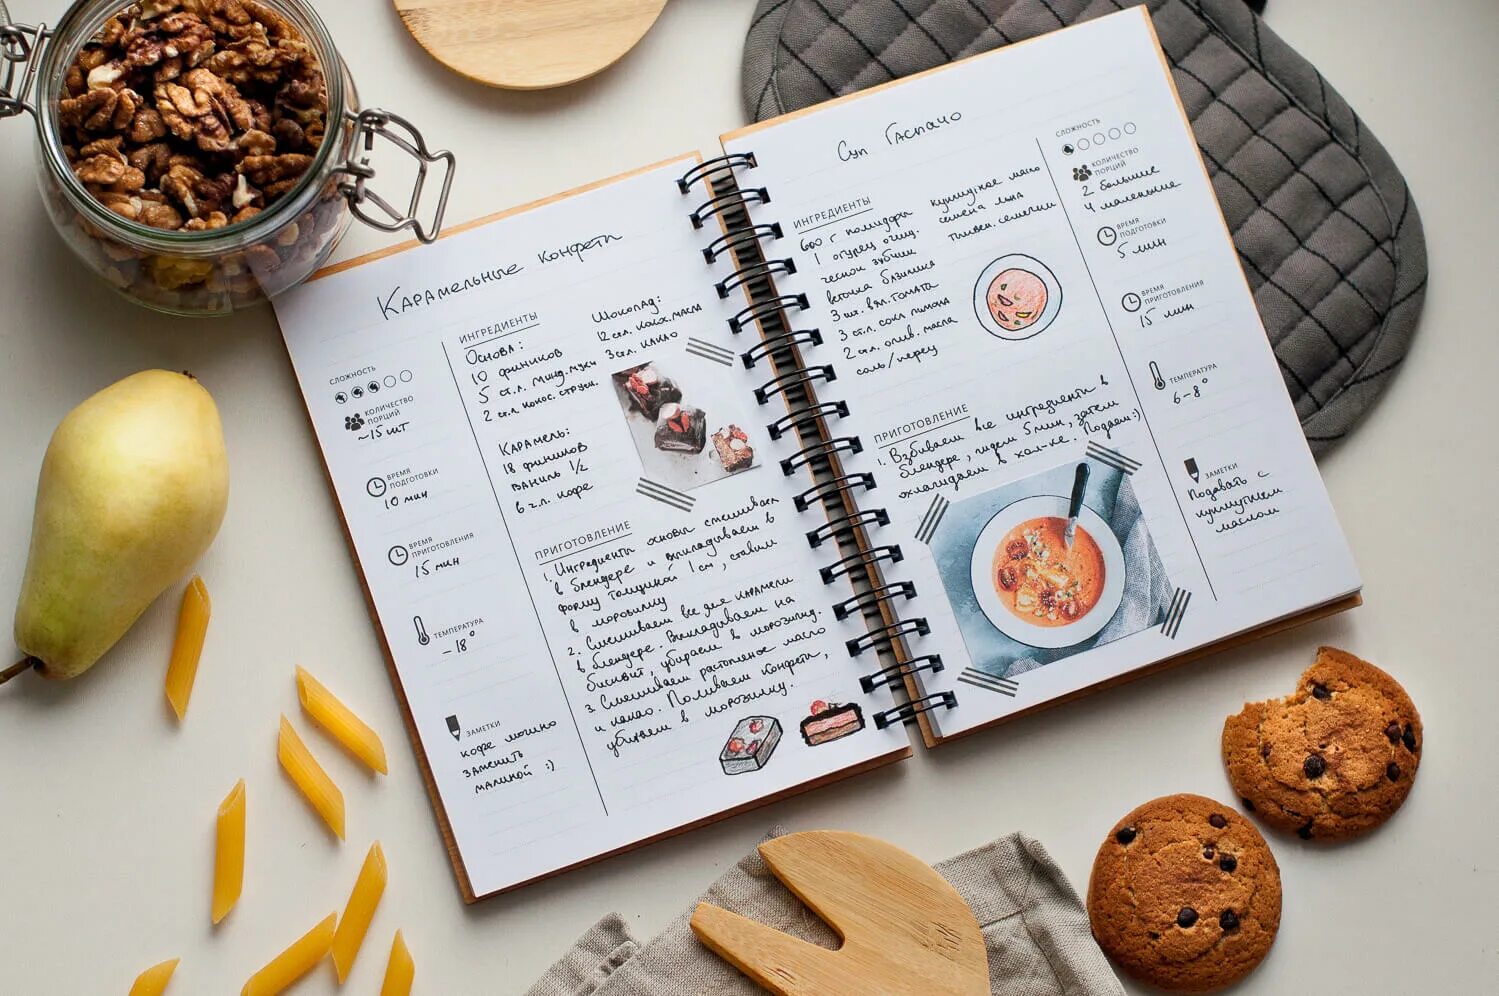 Карамельные конфеты
СЛОЖНОСТЬ
КОЛИЧЕСТВО
ПОРЦИЙ
~15 шт
ВРЕМЯ
ПОДГОТОВКИ
10 мин
ВРЕМЯ
ПРИГОТОВЛЕНИЯ
15 мин
ТЕМПЕРАТУРА
-18°
ЗАМЕТКИ
кофе можно
заменить
малиной :)
ИНГРЕДИЕНТЫ
Основа:
10 фиников
5 ст.л. минд. муки
2 ст.л. кокос. струж.
Шоколад:
12 ст.л. кокос. масла
3 ст.л. какао
Карамель:
18 фиников
ваниль 1/2
6 ч.л. кофе
ПРИГОТОВЛЕНИЕ
1. Ингредиенты основы смешиваем
в блендере и выкладываем в
форму толщиной 1 см, ставим
в морозилку
2. Смешиваем все для карамели
в блендере. Выкладываем на
бисквит, убираем в морозилку.
3. Смешиваем растопленое масло
и какао. Поливаем конфеты,
убираем в морозилку.
Суп Гаспачо
ИНГРЕДИЕНТЫ
600 г помидоры
1 огурец очищ.
чеснок зубчик
веточка базилика
3 шт. вял. томата
3 ст.л. сока лимона
2 стл. олив. масла
соль/перец
кунжутное масло
семена льна
тыквен. семечки
ПРИГОТОВЛЕНИЕ
1. Взбиваем все ингредиенты в
блендере, ждем 5 мин, затем
охлаждаем в хол-ке. Подаем :)
СЛОЖНОСТЬ
КОЛИЧЕСТВО
ПОРЦИЙ
2 большие
4 маленькие
ВРЕМЯ
ПОДГОТОВКИ
5 мин
ВРЕМЯ
ПРИГОТОВЛЕНИЯ
15 мин
ТЕМПЕРАТУРА
6-8°
ЗАМЕТКИ
Подавать с
кунжутным
маслом